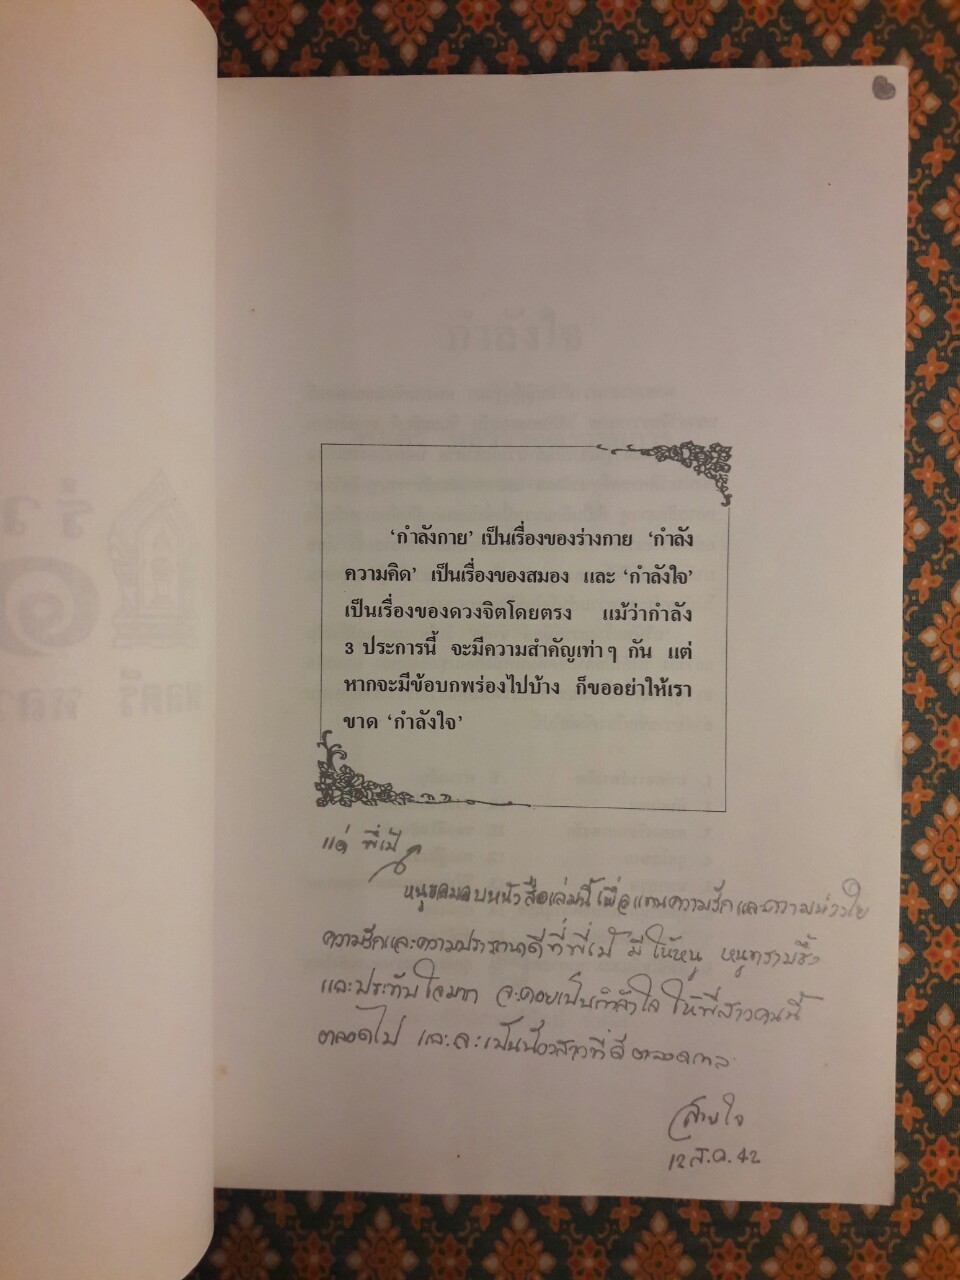 'กำลังกาย' เป็นเรื่องของร่างกาย 'กำลัง
ความคิด' เป็นเรื่องของสมอง และ 'กำลังใจ'
เป็นเรื่องของดวงจิตโดยตรง แม้ว่ากำลัง
3 ประการนี้ จะมีความสำคัญเท่าๆ กัน แต่
หากจะมีข้อบกพร่องไปบ้าง ก็ขออย่าให้เรา
ขาด 'กำลังใจ'
แด่ พี่เป้
หนูขอมอบหนังสือเล่มนี้เพื่อแทนความรักและความห่วงใย
ความรักและความปรารถนาดีที่พี่เป้ มีให้หนู หนูทราบซึ้ง
และประทับใจมาก จะคอยเป็นกำลังใจ ให้พี่สาวคนนี้
ตลอดไป และจะเป็นน้องสาวที่ดีตลอดกาล
สายใจ
12 ส.ค. 42